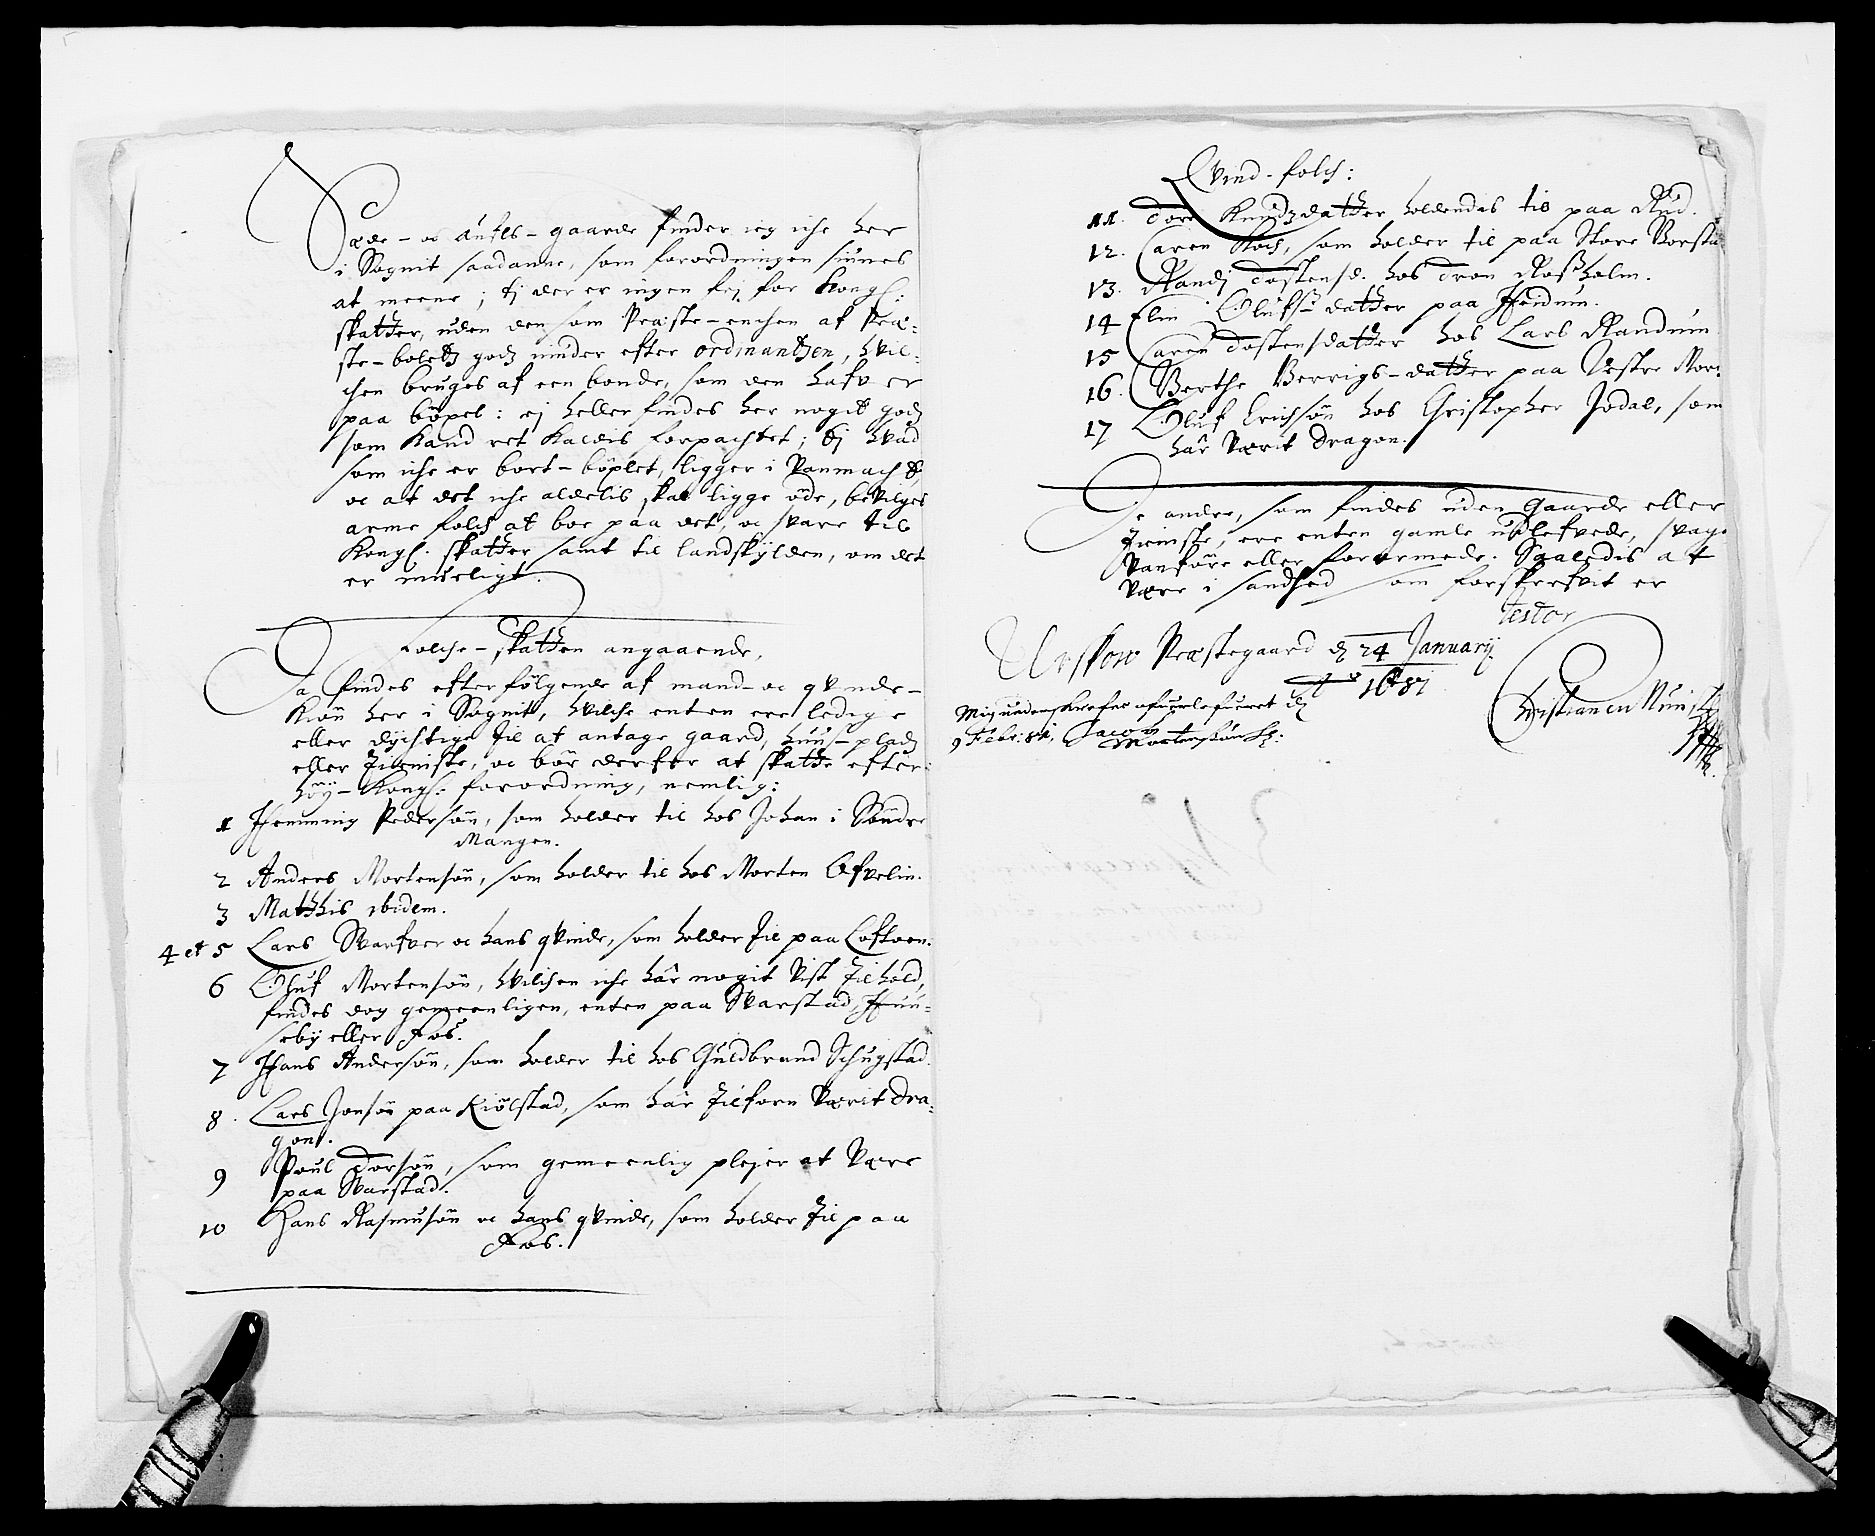 Sæde- oc aufls-gaarde finder ieg iche her
i Sognit saadanne, som forordningen siunes
at meene; tj der er ingen frj for Kongl:
skatter, uden den som Præste-enchen af Præ-
ste-boletz godz niuder efter ordinantzen, hvil-
chen bruges af een bonde, som den hafver
paa böxel: ej heller findes her nogit godz
som Kand ret Kaldis forpachtet; tj hvad
som iche er bort-böxlet, ligger i Vanmacht,
oc at det iche aldelis skal ligge öde, bevilges
arme folch at boe paa det, oc svare til
Kongl. skatter samt til landskylden, om det
er mueligt.
Folche-skatten angaaende,
Da findes efterfölgende af mand- oc qvinde-
Kiön her i Sognit, hvilche enten ere ledige
eller dychtige til at antage gaard, huus-pladz
eller tieniste, oc bör derfor at skatte efter
höy-Kongl: forordning, nemlig:
1 Hemming Pedersön, som holder til hos Johan i Söndre
Mangen.
2 Anders Mortensön, som holder til hos Morten Ofvelin.
3 Matthis ibidem.
4 et 5 Lars Svarfver oc hans qvinde, som holder til paa Loftoen.
6 Oluf Mortensön, hvilchen iche hâr nogit Vist tilhold,
findes dog gemeenligen, enten paa Svarstad, Huu-
seby eller Fos.
7 Hans Andersön, som holder til hos Guldbrand Schugstad.
8. Lars Jonsön paa Kiölstad, som hâr tilforn Værit Dra-
gon.
9 Poul Torsön, som gemeenlig plejer at Være
paa Svarstad.
10 Hans Rasmusön oc hans qvinde, som holder til paa
Fos.
Qvind-folch:
11. Tore Knudzdatter holdendes til paa Rud.
12. Caren Koch, som holder til paa Store Borsta
13. Randj Tostensd. hos Tron Rosholm.
14 Elin Olufs-datter paa Hordnin.
15 Caren Tostensdatter hos Lars Randuin
16. Berthe Berrigs-datter paa Vestre Mor:
17 Oluf Erichsön hos Christopher Jodal, som
hâr Værit Dragon.
De andre, som findes uden Gaarde eller
tieniste, ere enten gamle udlefvede, svage
Vanföre eller forarmede. Saaledis at
Være i sandhed som forskrefvit er
testor
Urskow Præstegaard d. 24 January
Ao 1687
Christian Munch
Mig underskrefne d
9 Febr: 87, Jacob
Mortensön